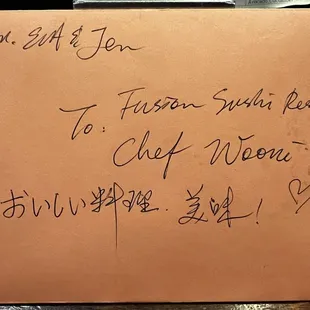 & Jen
To: Fusion Sushi Res
Chef Wooni
おいしい料理. 美味!